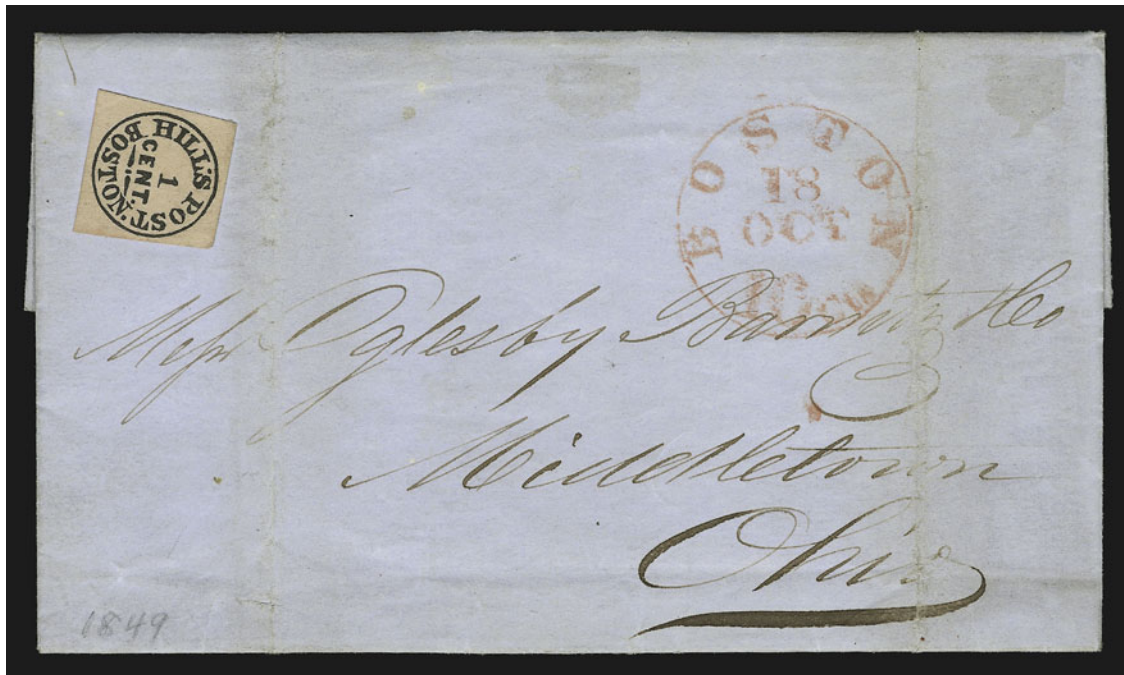 HILL'S POST. BOSTON.
1
CENT.
BOSTON
18
OCT
10 cts
Messrs Oglesby Barnitz & Co
Middletown
Ohio
1849